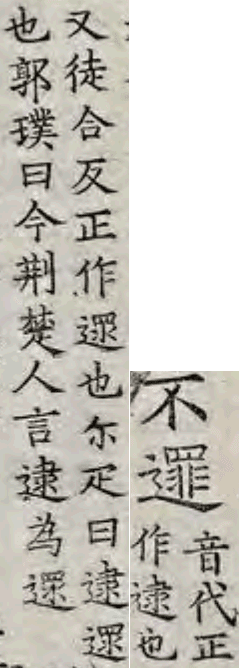 不
音代正
作逮也
又徒合反正作遝也尓疋曰逮遝
也郭璞曰今荆楚人言逮為遝